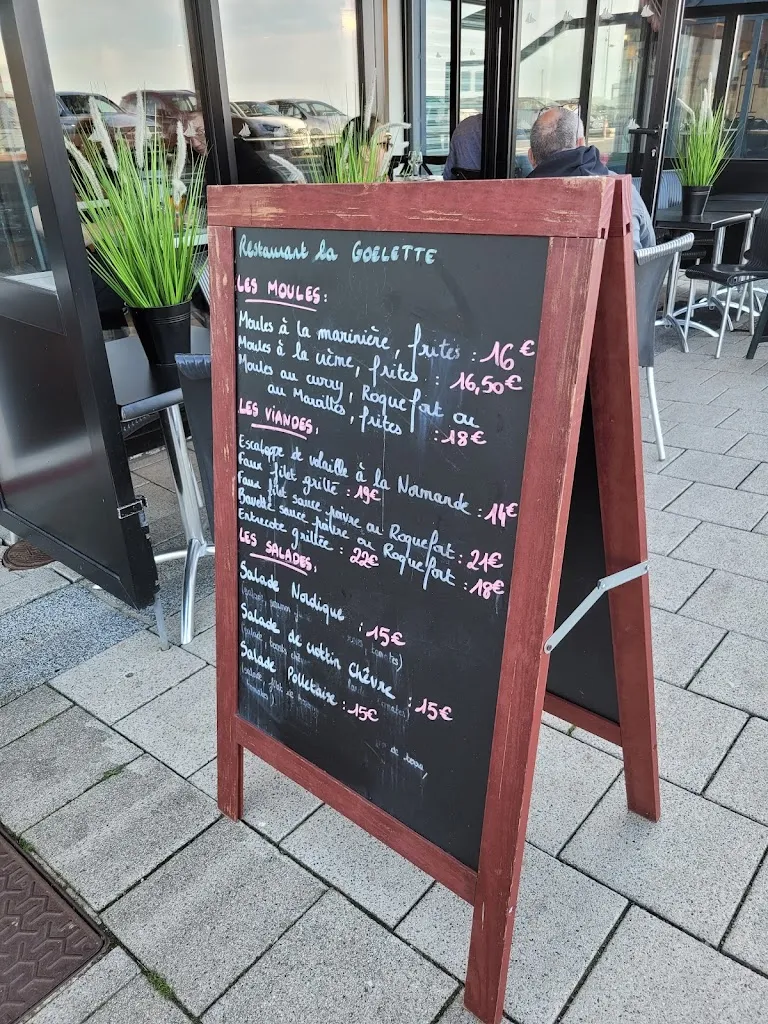 Restaurant la GOELETTE
LES MOULES:
Moules à la marinière, frites : 16€
Moules à la crème, frites : 16,50€
Moules au curry, Roquefort ou
au Maroilles, frites : 18€
LES VIANDES,
Escaloppe de volaille à la Normande : 14€
Faux filet grillé : 19€
Faux filet sauce poivre ou Roquefort : 21€
Bavette sauce poivre ou Roquefort : 18€
Entrecote grillée : 22€
LES SALADES,
Salade Nordique : 15€
Salade de crottin Chêvre : 15€
Salade Polletaise : 15€